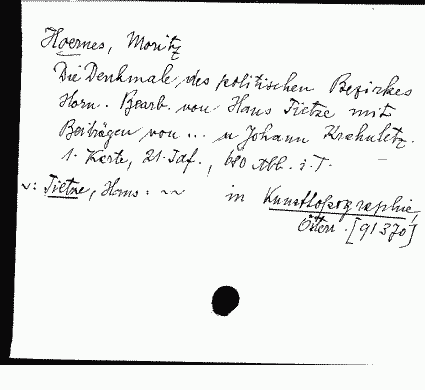 Hoernes, Moritz
Die Denkmale des politischen Bezirkes
Horn. Bearb. von Hans Tietze mit
Beiträgen von ... u Johann Krahuletz.
1. Karte, 21. Taf., 680 Abb. i. T.
v: Tietze, Hans: ~~ in Kunsttopographie,
Österr. [91370]